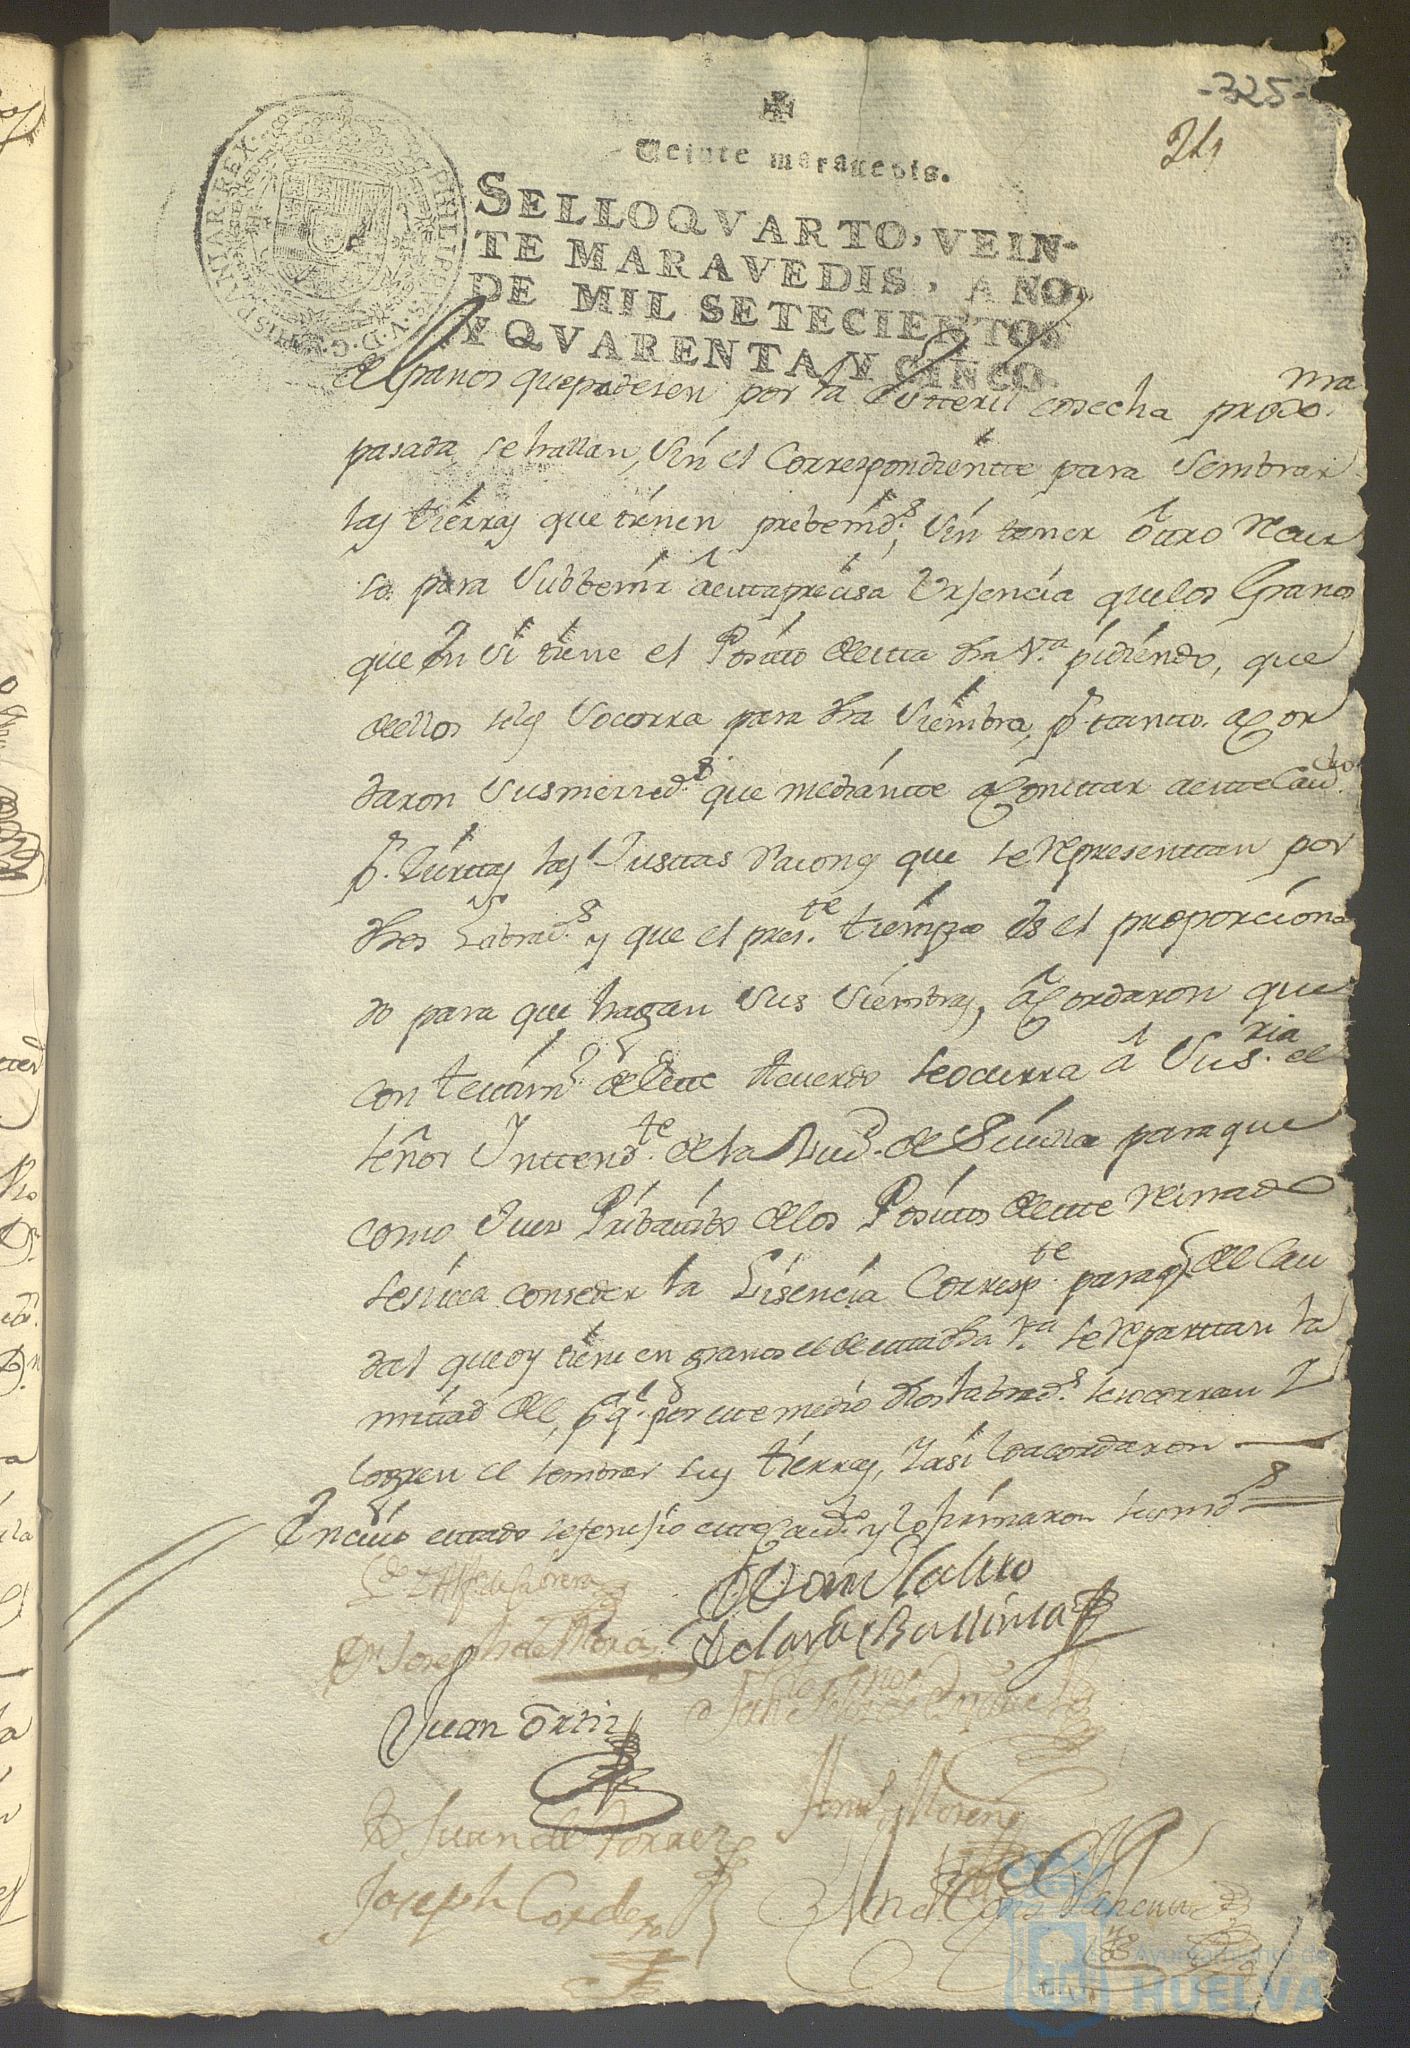 -325-
24
Veinte maravedis.
SELLO QVARTO, VEIN-
TE MARAVEDIS, AÑO
DE MIL SETECIENTOS
Y QVARENTA Y CINCO.
PHILIPPUS·V·D·G· HISPANIAR·REX·
de Granos que padesen por la esteril cosecha proxma.
pasada se hallan, sin el Correspondientte para sembrar
las tierras que tienen prebenids., sin tener ôtro Recur
so para subbenir â esta precisa Urjencia que los Granos
que en si tiene el Posito de esta dha Va. pidiendo, que
de ellos se les socorra para dha siembra, pr. tanto acor
daron susmerceds. que mediantte aConstar a este Cavdo.
pr. siertas las Justas Raiones que se representtan por
dhos Labrads. y que el preste. tiempo es el proporciona
do para que hagan sus siembras, âCordaron que
con testimo. de este Acuerdo se ocurra â Susria. el
señor Inttendte. de la Ciud. de Sevilla para que
como Jues Pribatibo de los Positos de este Reinado
se sirva conseder la Lisencia Correspte. para q del Cau
dal que oy tiene en granos el de esta dha Va. se repartan la
mitad del, pa. qe. por este medio dhos labrads. se socorran y
logren el sembrar sus tierras, y asi lo acordaron
En cuio estado se fenesio este Cavdo. y lo firmaron susmds.
Ldo. Dn Alfo. de Cabrera
Dn. Joseph de Mora
Juan Ôrtiz
D Juan de Torrez
Joseph Cordero
Moreno
Ayuntamiento de
HUELVA